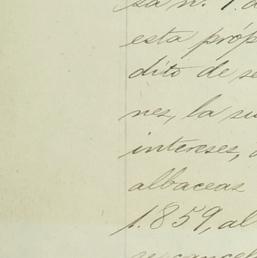 sa n. 1. d
esta próp
dito de se
nes, la su
intereses,
albaceas
1.859, al